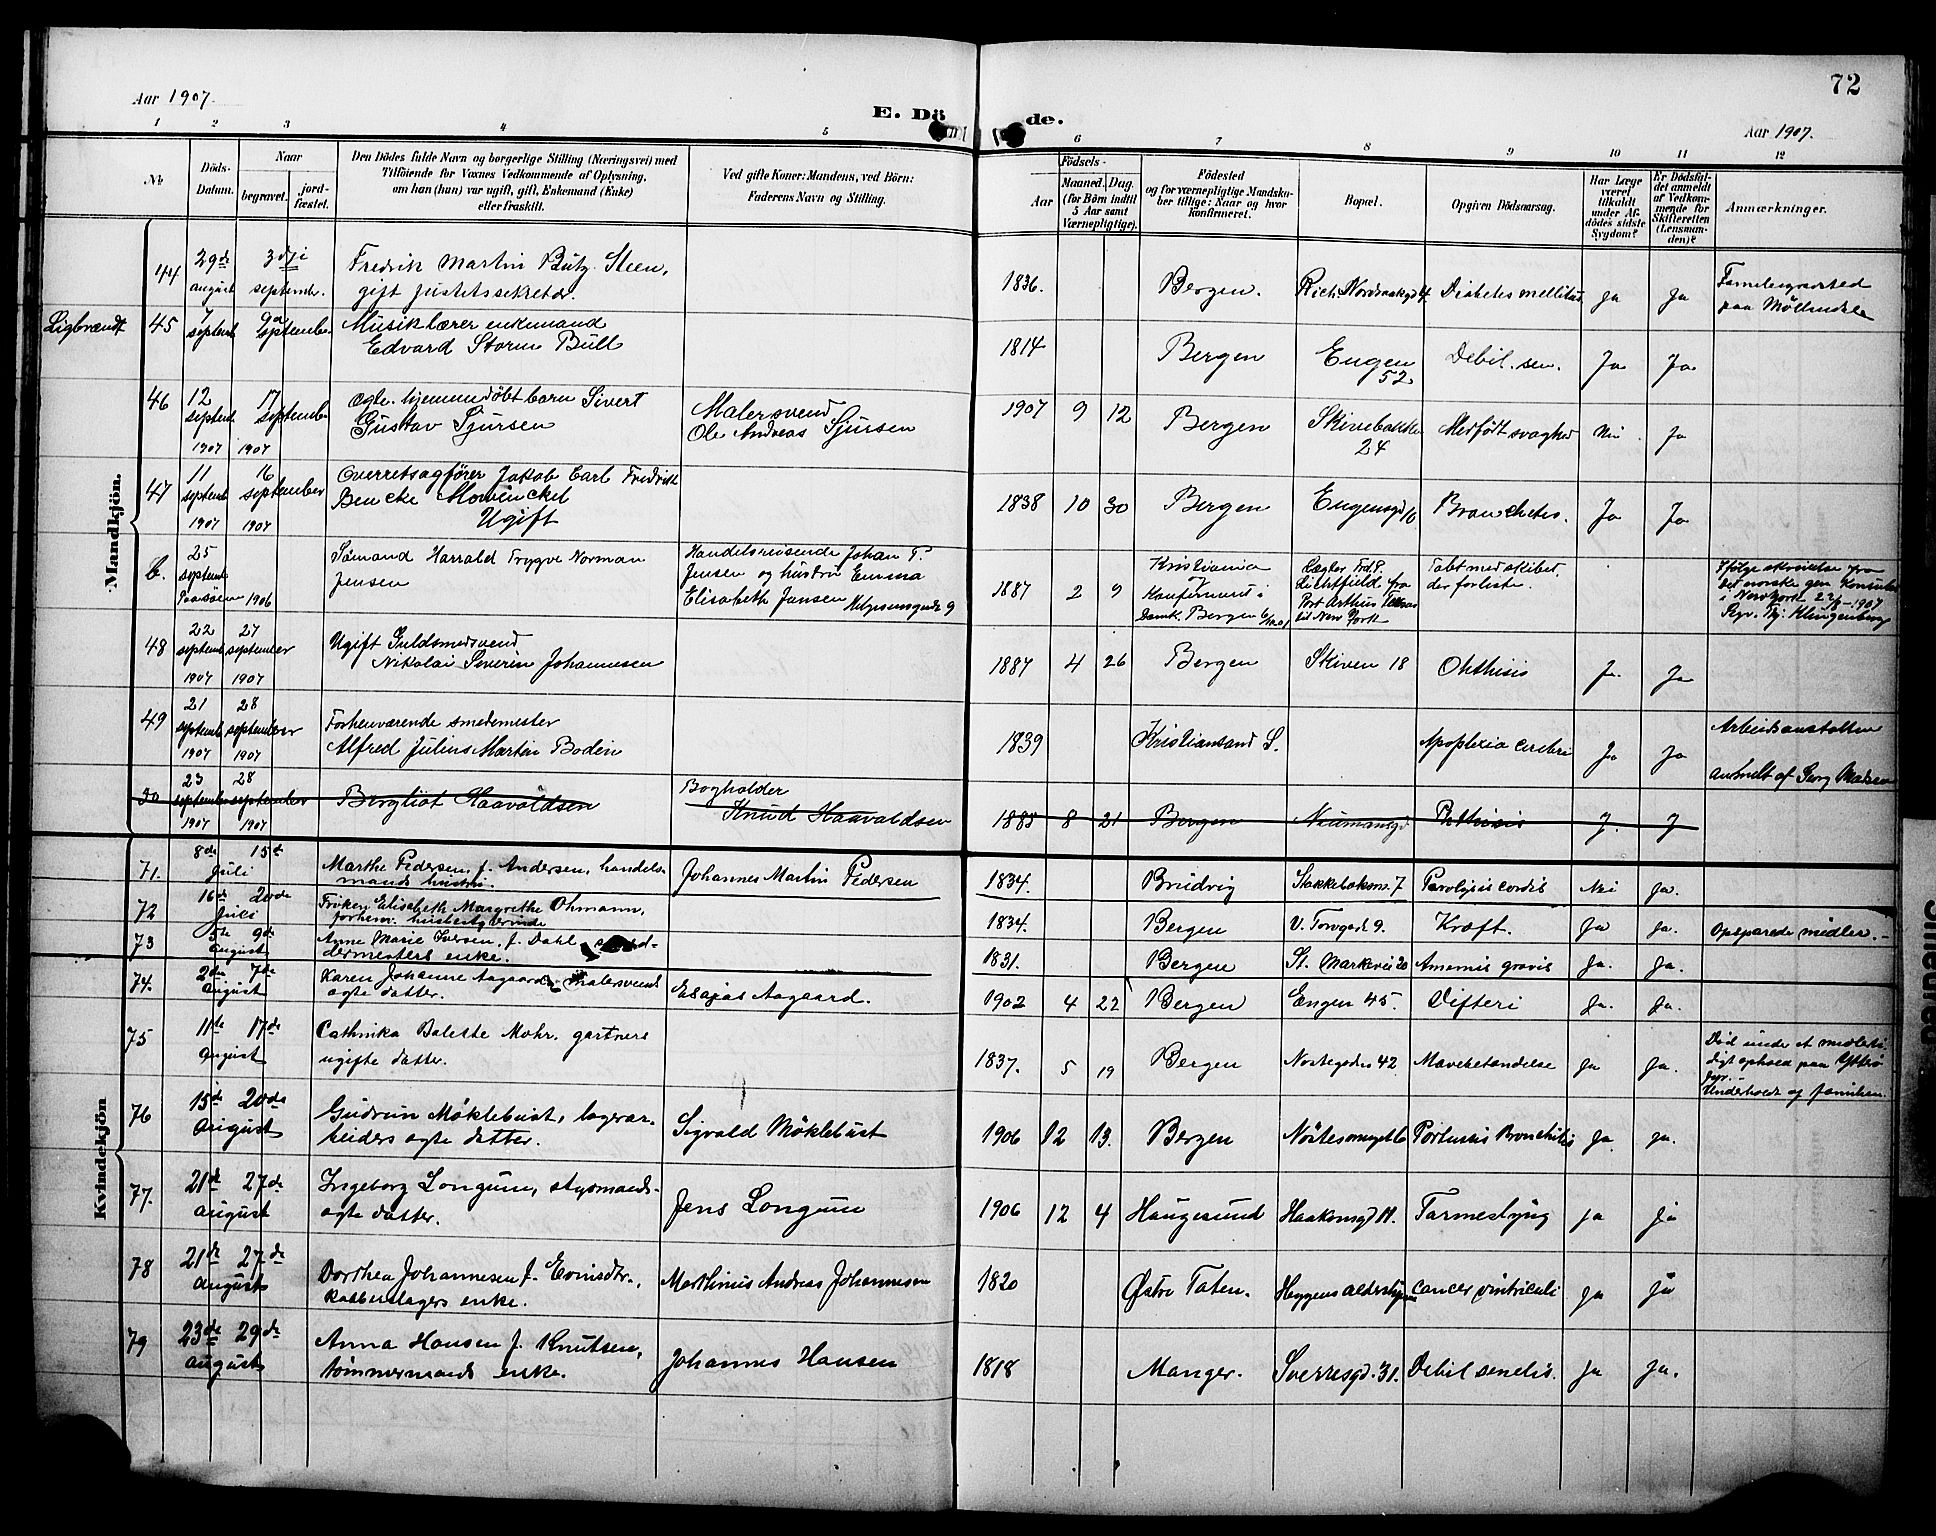 72
Aar 1907.
E. Dö de.
Aar 1907.
1 2 3 4 5 6 7 8 9 10 11 12
No
Döds-
Datum.
Naar
begravet.
jord-
fæstet.
Den Dödes fulde Navn og borgerlige Stilling (Næringsvei) med
Tilföiende for Voxnes Vedkommende af Oplysning,
om han (hun) var ugift, gift, Enkemand (Enke)
eller fraskilt.
Ved gifte Koner: Mandens, ved Börn:
Faderens Navn og Stilling.
Födsels-
Aar
Maaned. Dag.
(for Börn indtil
5 Aar samt
Værnepligtige).
Födested
og for værnepligtige Mandskaber
tillige: Naar og hvor
konfirmeret.
Bopæl.
Opgiven Dödsaarsag.
Har Læge
været
tilkaldt
under Afdödes
sidste
Sygdom?
Er Dödsfaldet
anmeldt
af Vedkommende
for
Skifteretten
(Lensmanden)?
Anmærkninger.
Mandkjön.
44 29de august 3die september. Fredrik Martin Bütz. Steen,
gift justitssekretær. 1836. Bergen. Rich. Nordraaksgd 4. Diabetes mellitus ja Ja
paa Møllendal
Ligbrændt 45 7 septemb 9de september Musiklærer enkemand
Edvard Storm Bull 1814 Bergen Engen
52 Debil. sen. Ja Ja
46 12 septemb 1907 17 september 1907 Ægte hjemmedøbt barn Sivert
Gustav Sjursen Malersvend
Ole Andreas Sjursen 1907 9 12 Bergen Skivebakken
24 Medfødt svaghed Nei Ja
47 11 septemb 1907 16 september 1907 Overretsagfører Jakob Carl Fredrik
Bencke Mowinckel
Ugift 1838 10 30 Bergen Engensgd 10 Bronchitis. Ja Ja
b. 25 septemb Paasøen 1906 Sømand Harrald Trygve Norman
Jensen Handelsreisende Johan T.
Jensen og hustru Emma
Elisabeth Jansen 1887 2 9 Kristiania
Konfirmeret i
Domk. Bergen Lægter Frd. P.
Lichtfield fra
Port Arthur Texas
til New York Tabt med skibet,
der forliste. Ifølge skrivelse fra
det norske gen. Konsulat
i New York 22/8-1907
Klingenberg
48 22 septemb 1907 27 september 1907 Ugift Guldsmedsvend
Nikolai Severin Johannesen 1887 4 26 Bergen Skiven 18 Phthisis Ja Ja
49 21 septemb 1907 28 september 1907 Forhenværende smedemester
Alfred Julius Martin Bodin 1839 Kristiansand S. Apoplexia cerebri Ja Ja Arbeidsanstalten
anmeldt af Georg Madsen
50 23 september 1907 28 september 1907 Bergliot Haavaldsen Bogholder
Knud Haavaldsen 1885 8 21 Bergen Neumansgd Phthisis J. J
Kvindekjön
71. 8de 15de Juli Marthe Pedersen f. Andersen, handels-
mands hustru. Johannes Martin Pedersen 1834. Bruvig Stakkeloksm. 7 Paralysis cordis Nei Ja.
72 16de 20de Juli Frøken Elisabeth Margrethe Ohmann,
forhen. husbestyrerinde 1834. Bergen V. Torvgade 9. Kræft. Ja Ja. Opsparede midler.
73 5te 9de august Anne Marie Iversen, f. Dahl,
dermesters enke. 1831. Bergen St. Markevei 20 Anæmis gravis Ja. Ja.
74. 2den 7de august Karen Johanne Aagaard, Malersvends
ægte datter. Esajas Aagaard. 1902 4 22 Bergen Engen 45. Difteri Ja. Ja.
75 11te 17de august Cathnika Balette Mohr, gartners
ugifte datter. 1837. 5 19 Bergen Nøstegaden 42 Mavebetændelse Ja Ja. Død under et midlerti-
digt ophold paa Ytterø-
Underholdt af familien.
76 15de 20de august Gudrun Møklebust, lagerar-
beiders ægte datter. Sigvald Møklebust 1906 12 13. Bergen Nøstesmuget 6 Pertussis Bronchitis Ja Ja.
77. 21de 27de august Ingeborg Longum, styrmands-
ægte datter. Jens Longum 1906 12 4 Haugesund Haakonsgd 11. Tarmeslyng ja ja
78 21de 27de august Dorthea Johannesen f. Evinsdtr.,
kobberslagers enke. Marthinus Andreas Johannesen 1820 Østre Toten. Cancer vintriculi ja ja
79 23de 29de august Anna Hansen f. Knutsen,
tømmermands enke. Johannes Hansen 1818 Manger. Sverresgd. 31. Debil senilis. Ja Ja.